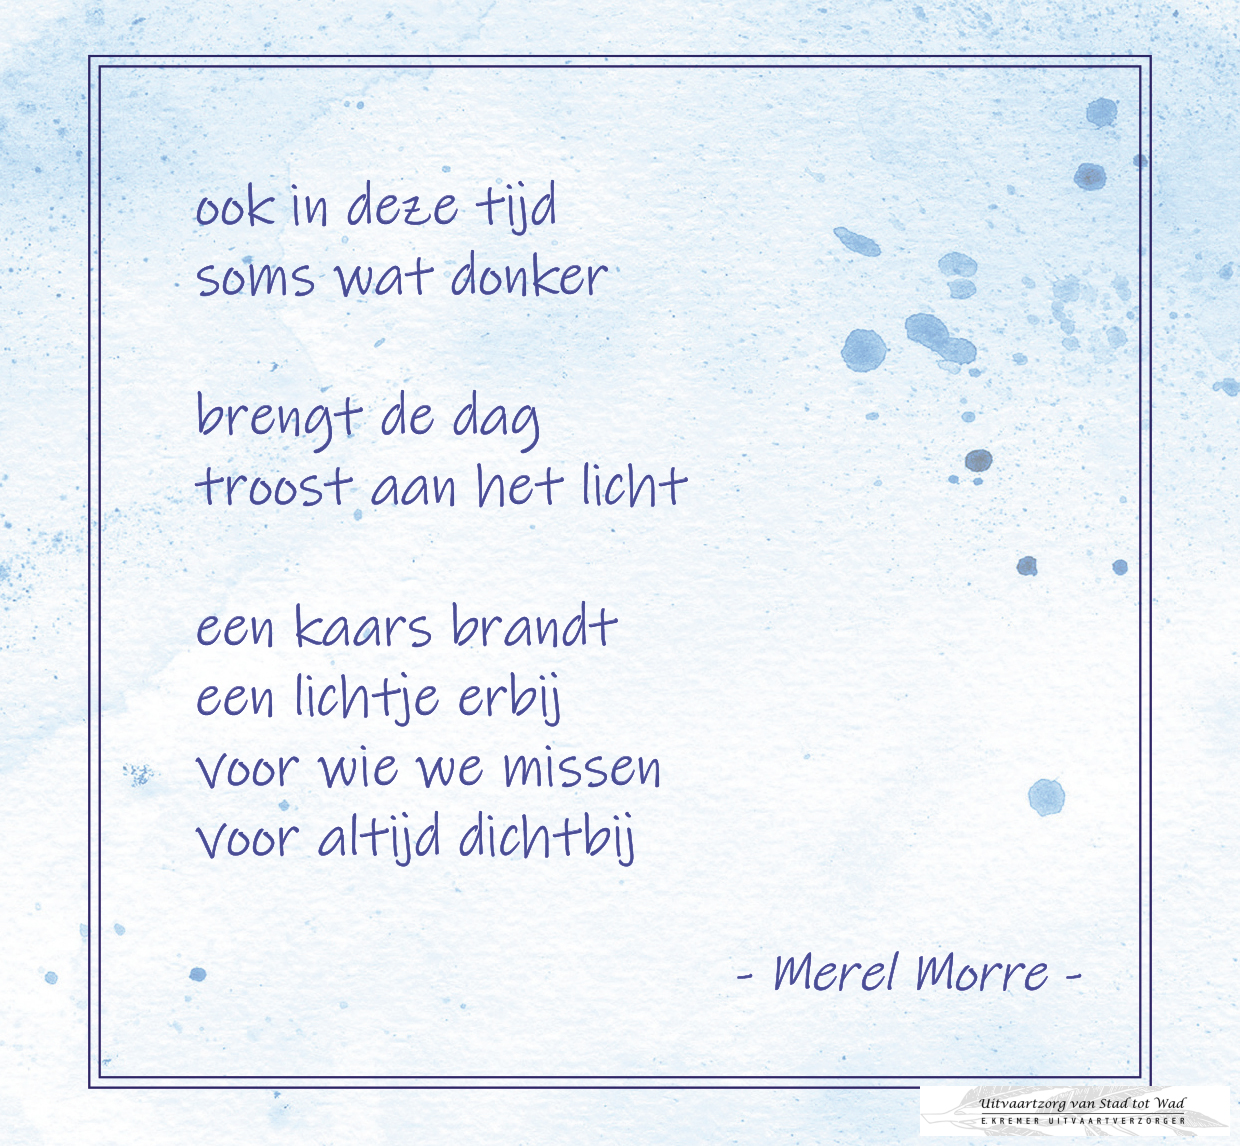 ook in deze tijd
soms wat donker
brengt de dag
troost aan het licht
een kaars brandt
een lichtje erbij
voor wie we missen
voor altijd dichtbij
- Merel Morre -
Uitvaartzorg van Stad tot Wad
E.KREMER UITVAARTVERZORGER